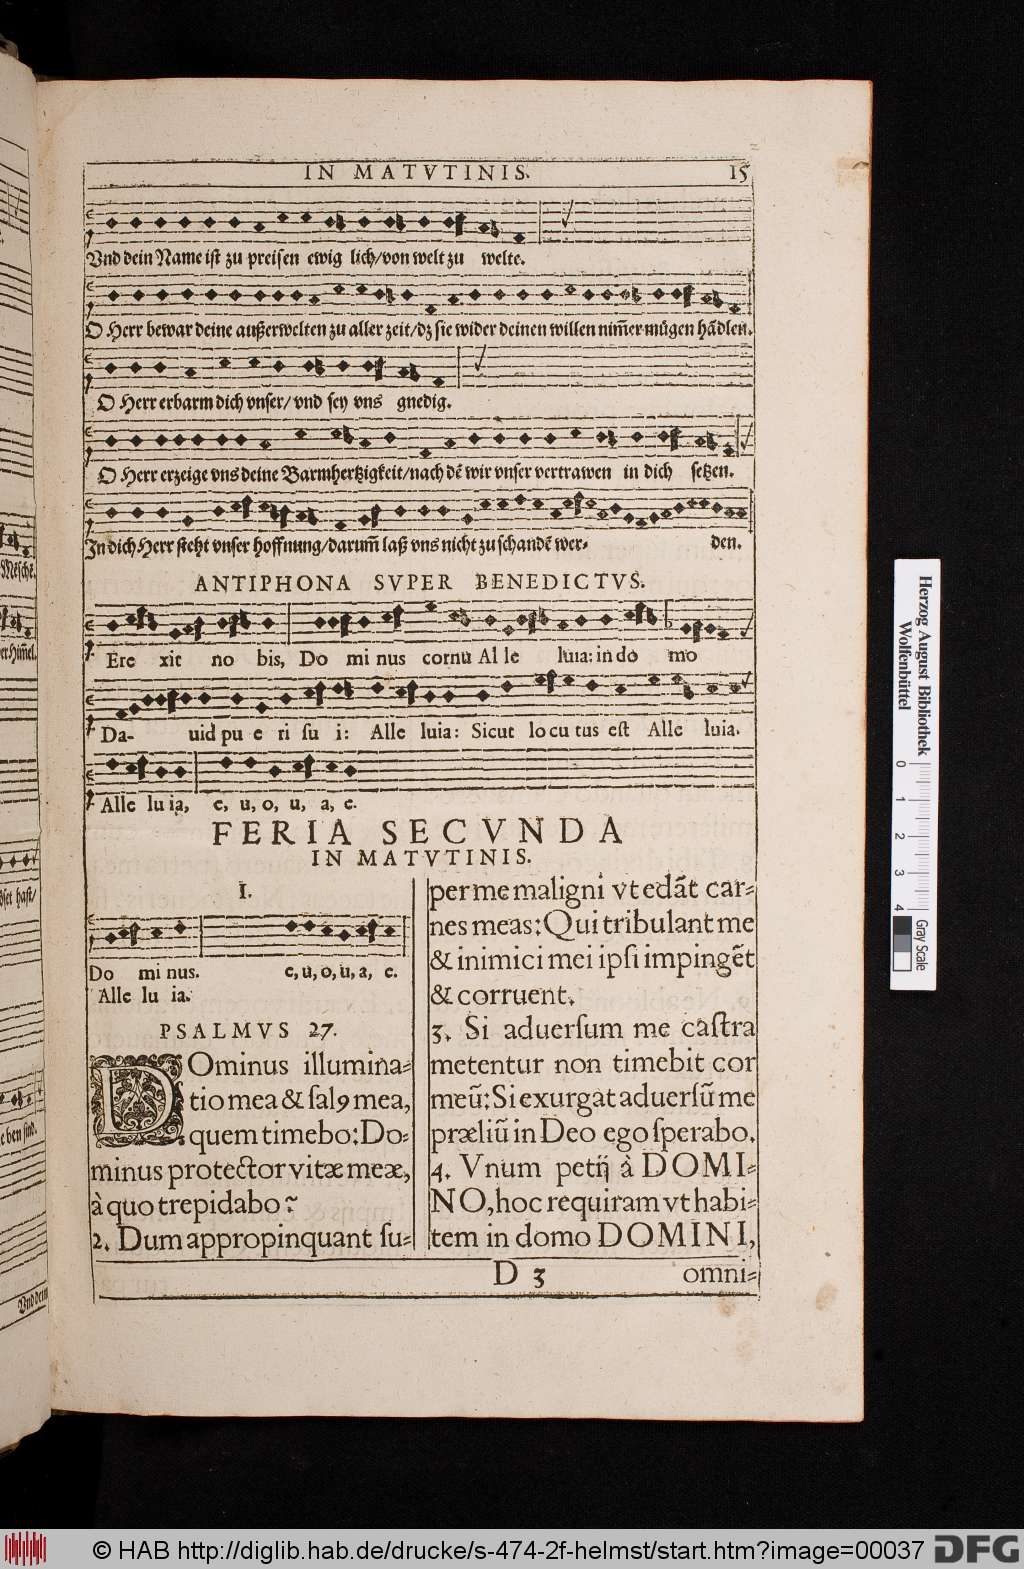 IN MATVTINIS.
15
Vnd dein Name ist zu preisen ewig lich/von welt zu welte.
O Herr bewar deine außerwelten zu aller zeit/dz sie wider deinen willen nim̃er mügen hãdlen.
O Herr erbarm dich vnser/ vnd sey vns gnedig.
O Herr erzeige vns deine Barmhertzigkeit/nach dẽ wir vnser vertrawen in dich setzen.
In dich Herr steht vnser hoffnung/darum̃ laß vns nicht zu schandẽ wer- den.
ANTIPHONA SVPER BENEDICTVS.
Ere xit no bis, Do mi nus cornu Al le luia: in do mo
Da- uid pu e ri su i: Alle luia: Sicut lo cu tus est Alle luia.
Alle lu ia, e, u, o, u, a, e.
FERIA SECVNDA
IN MATVTINIS.
I.
Do mi nus. e, u, o, u, a, e.
Alle lu ia.
PSALMVS 27.
DOminus illumina-
tio mea & salꝰ mea,
quem timebo: Do-
minus protector vitæ meæ,
à quo trepidabo?
2. Dum appropinquant su-
per me maligni vt edãt car-
nes meas: Qui tribulant me
& inimici mei ipsi impingẽt
& corruent.
3. Si aduersum me castra
metentur non timebit cor
meũ: Si exurgat aduersũ me
præliũ in Deo ego sperabo.
4. Vnum petij à DOMI-
NO, hoc requiram vt habi-
tem in domo DOMINI,
D 3
omni-
Mẽsche.
er Him̃el.
e ben sind.
Vnd dein
Herzog August Bibliothek
Wolfenbüttel
0 1 2 3 4
Gray Scale
© HAB http://diglib.hab.de/drucke/s-474-2f-helmst/start.htm?image=00037
DFG